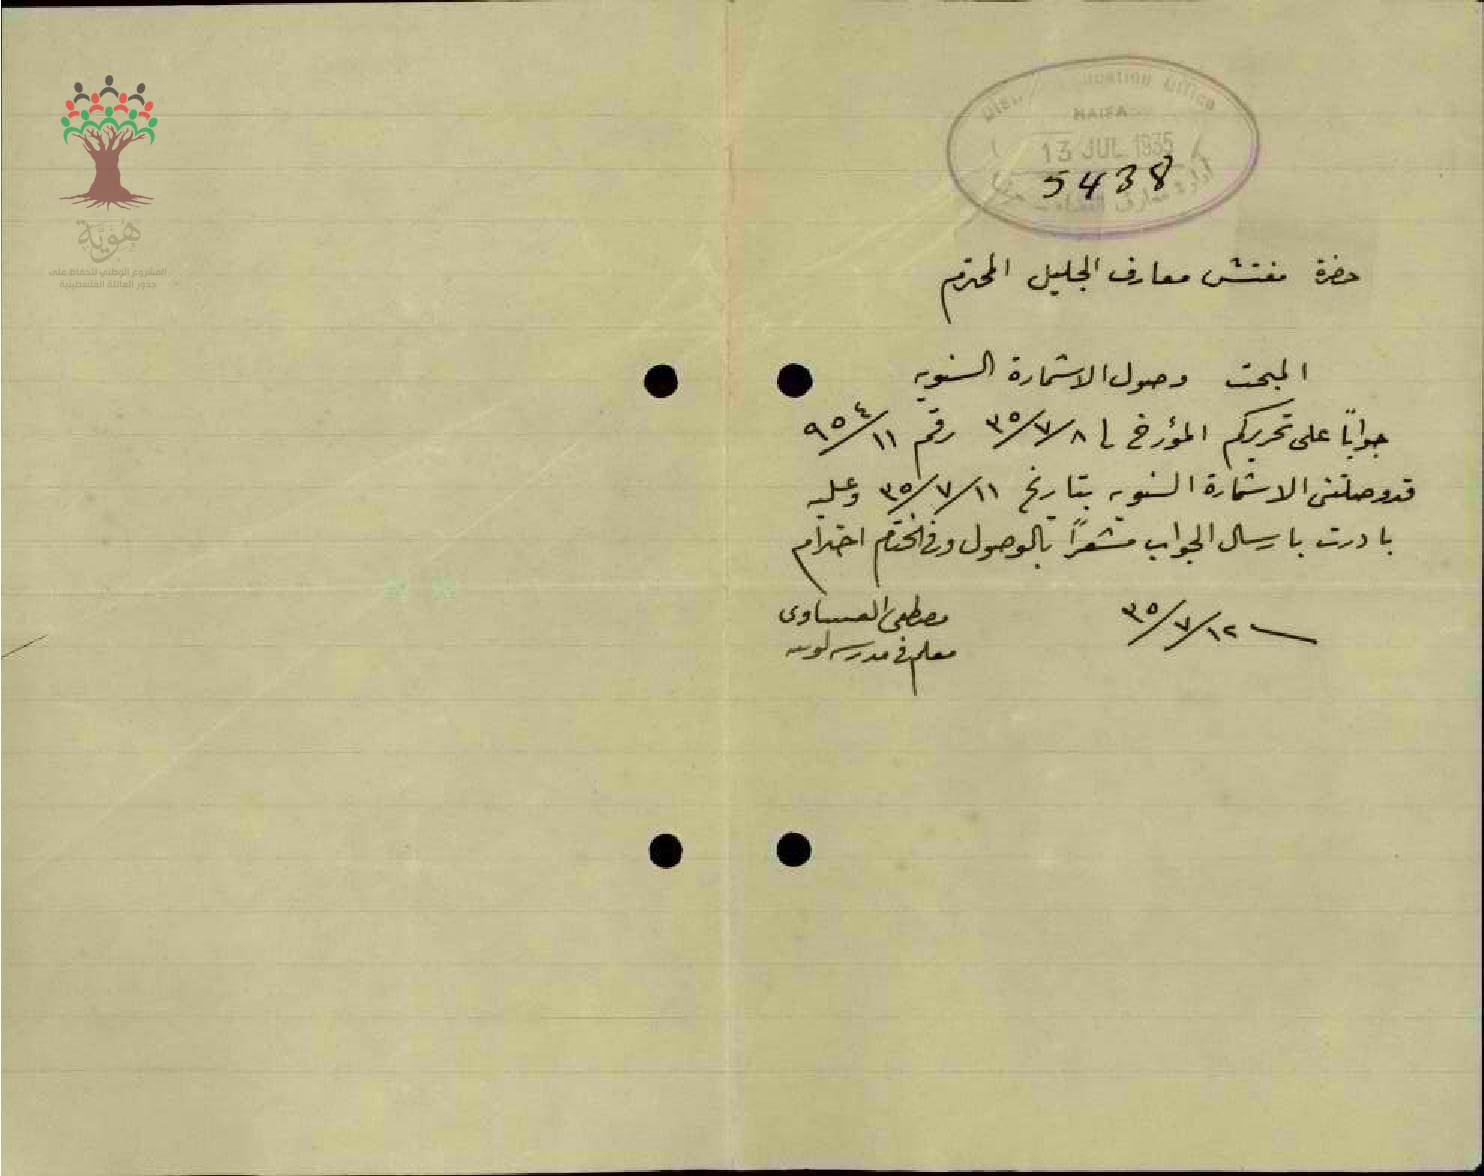 District Education Office
HAIFA
13 JUL 1935
5438
ادارة معارف
هوية
المشروع الوطني للحفاظ على
جذور العائلة الفلسطينية
حضرة مفتش معارف الجليل المحترم
المبحث وصول الاستمارة السنويه
جواباً على تحريركم المؤرخ في ٣٥/٧/٨ رقم ٩٥٤/١١
قد وصلتني الاستمارة السنويه بتاريخ ٣٥/٧/١١ وعليه
بادرت بارسال الجواب مشعراً بالوصول وفي الختام احترام
٣٥/٧/١٢ مصطفى العيساوي
معلم في مدرسة لوبيه